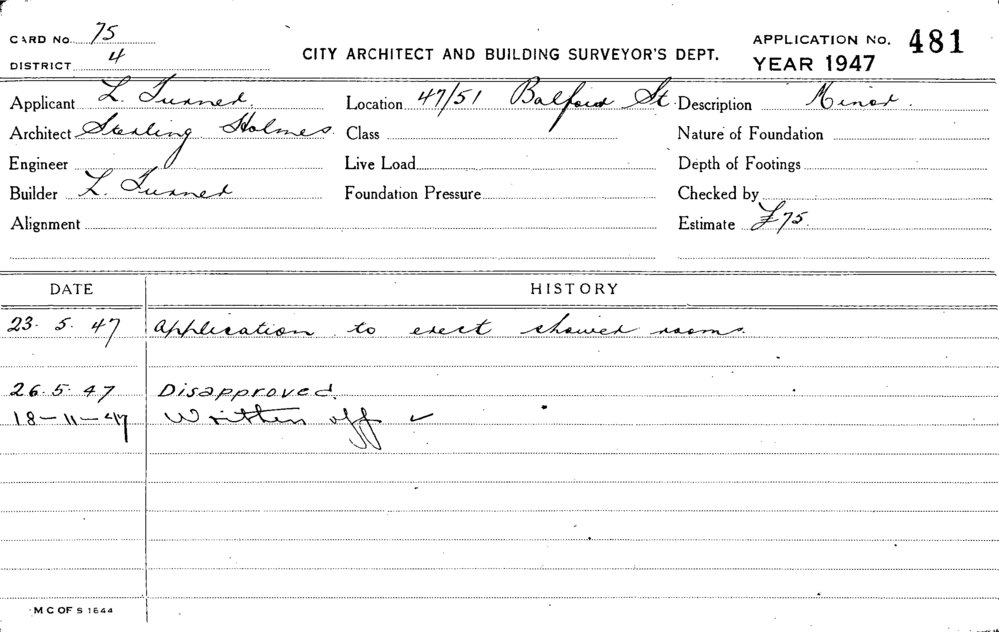 CARD No. 75
DISTRICT 4
CITY ARCHITECT AND BUILDING SURVEYOR'S DEPT.
APPLICATION No. 481
YEAR 1947
Applicant L. Turner. Location 47/51 Balfour St. Description Minor.
Architect Sterling Holmes. Class Nature of Foundation
Engineer Live Load Depth of Footings
Builder L. Turner Foundation Pressure Checked by
Alignment Estimate £75.
DATE HISTORY
23. 5. 47 Application to erect shower rooms.
26. 5. 47 Disapproved.
18-11-47 Written off ✓
M C OF S 1644